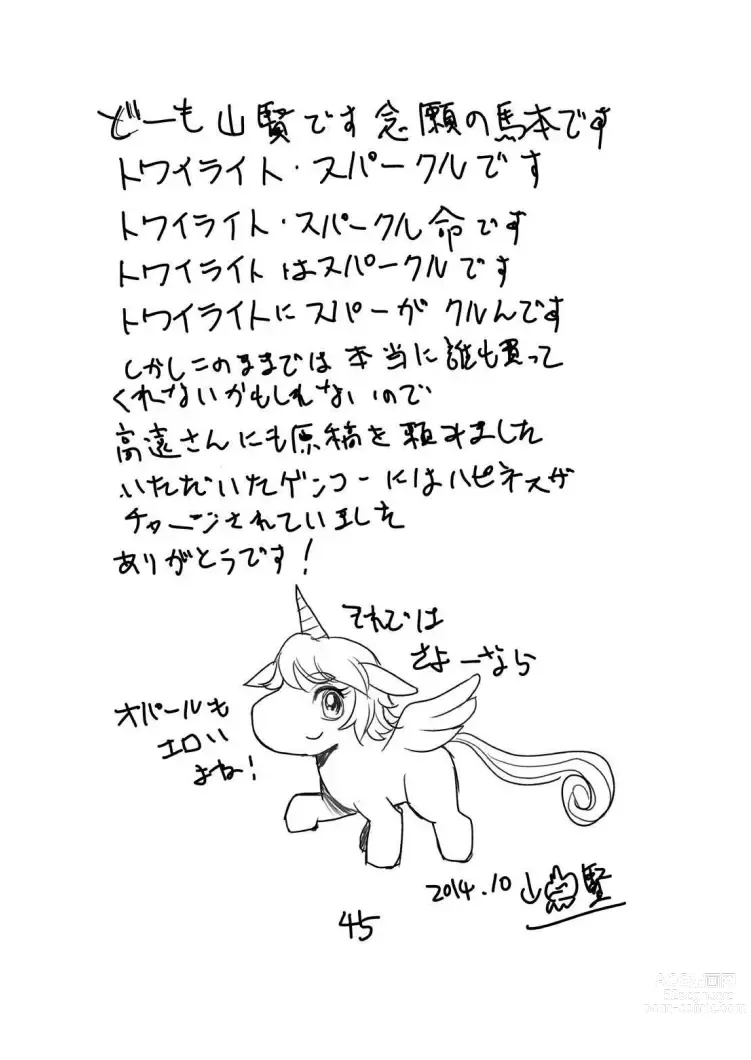 どーも山賢です念願の馬本です
トワイライト・スパークルです
トワイライト・スパークル命です
トワイライトはスパークルです
トワイライトにスパーがクルんです
しかしこのままでは本当に誰も買って
くれないかもしれないので
高遠さんにも原稿を頼みました
いただいたゲンコーにはハピネスが
チャージされていました
ありがとうです!
それでは
さよーなら
オパールも
エロい
まね!
2014.10 山賢
45